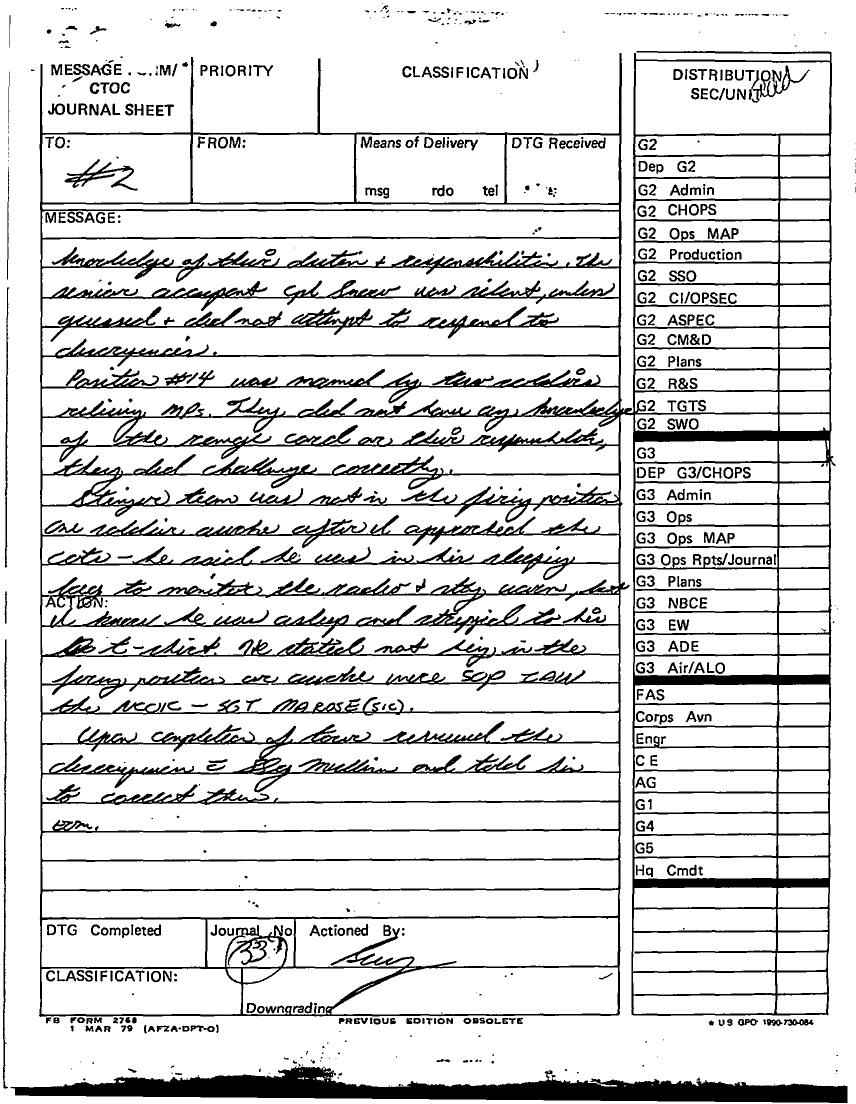 MESSAGE
CTOC
JOURNAL SHEET
PRIORITY
CLASSIFICATION
TO:
#2
FROM:
Means of Delivery
msg rdo tel
DTG Received
MESSAGE:
knowledge of their duties + responsibilities. The
senior occupant Cpl was silent, unless
+ did not attempt to respond to
discrepencies.
Position #14 was manned by two soldiers
reliving MPs. They did not have any knowledge
of the range card or their
they did challenge correctly.
Stinger team was not in the firing position
one soldier awoke after I approched the
cots - he said he was in his sleeping
bag to monitor the radio + stay warm, but
ACTION:
I know he was asleep and stripped to his
t-shirt. He stated not being in the
firing position or awake were SOP IAW
the NCOIC - SGT MAROSE (SIC).
Upon completion of tour reviewed the
and told him
to correct them.
DTG Completed
Journal No
33
Actioned By:
CLASSIFICATION:
Downgrading
FB FORM 2768
1 MAR 79 (AFZA-DPT-O)
PREVIOUS EDITION OBSOLETE
DISTRIBUTION
SEC/UNIT
G2
Dep G2
G2 Admin
G2 CHOPS
G2 Ops MAP
G2 Production
G2 SSO
G2 CI/OPSEC
G2 ASPEC
G2 CM&D
G2 Plans
G2 R&S
G2 TGTS
G2 SWO
G3
DEP G3/CHOPS
G3 Admin
G3 Ops
G3 Ops MAP
G3 Ops Rpts/Journal
G3 Plans
G3 NBCE
G3 EW
G3 ADE
G3 Air/ALO
FAS
Corps Avn
Engr
C E
AG
G1
G4
G5
Hq Cmdt
* US GPO 1990-730-084